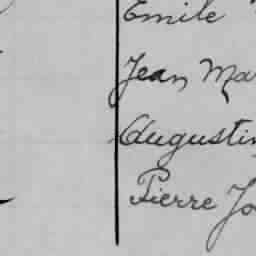 Emile
Jean Ma
Augustin
Pierre Jo